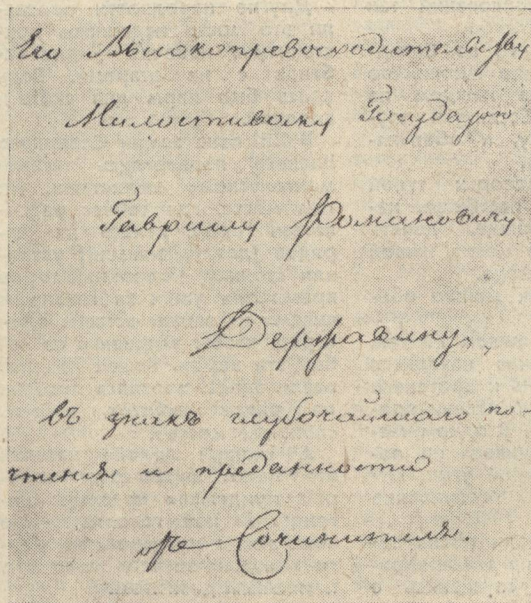 Его Высокопревосходительству
Милостивому Государю
Гавриилу Романовичу
Державину,
въ знакъ глубочайшаго по-
чтенія и преданности
отъ Сочинителя.